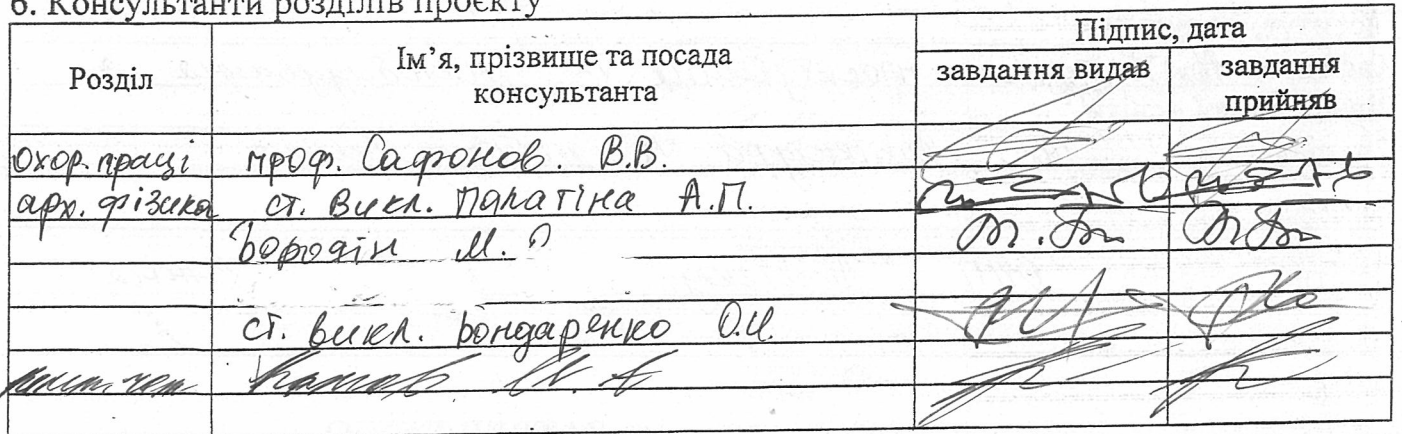 6. Консультанти розділів проєкту
Розділ
Ім’я, прізвище та посада консультанта
Підпис, дата
завдання видав
завдання прийняв
охор. праці проф. Сафонов В.В.
арх. фізика ст. викл. Палатіна А.П.
Бородін М.
ст. викл. Бондаренко О.И.